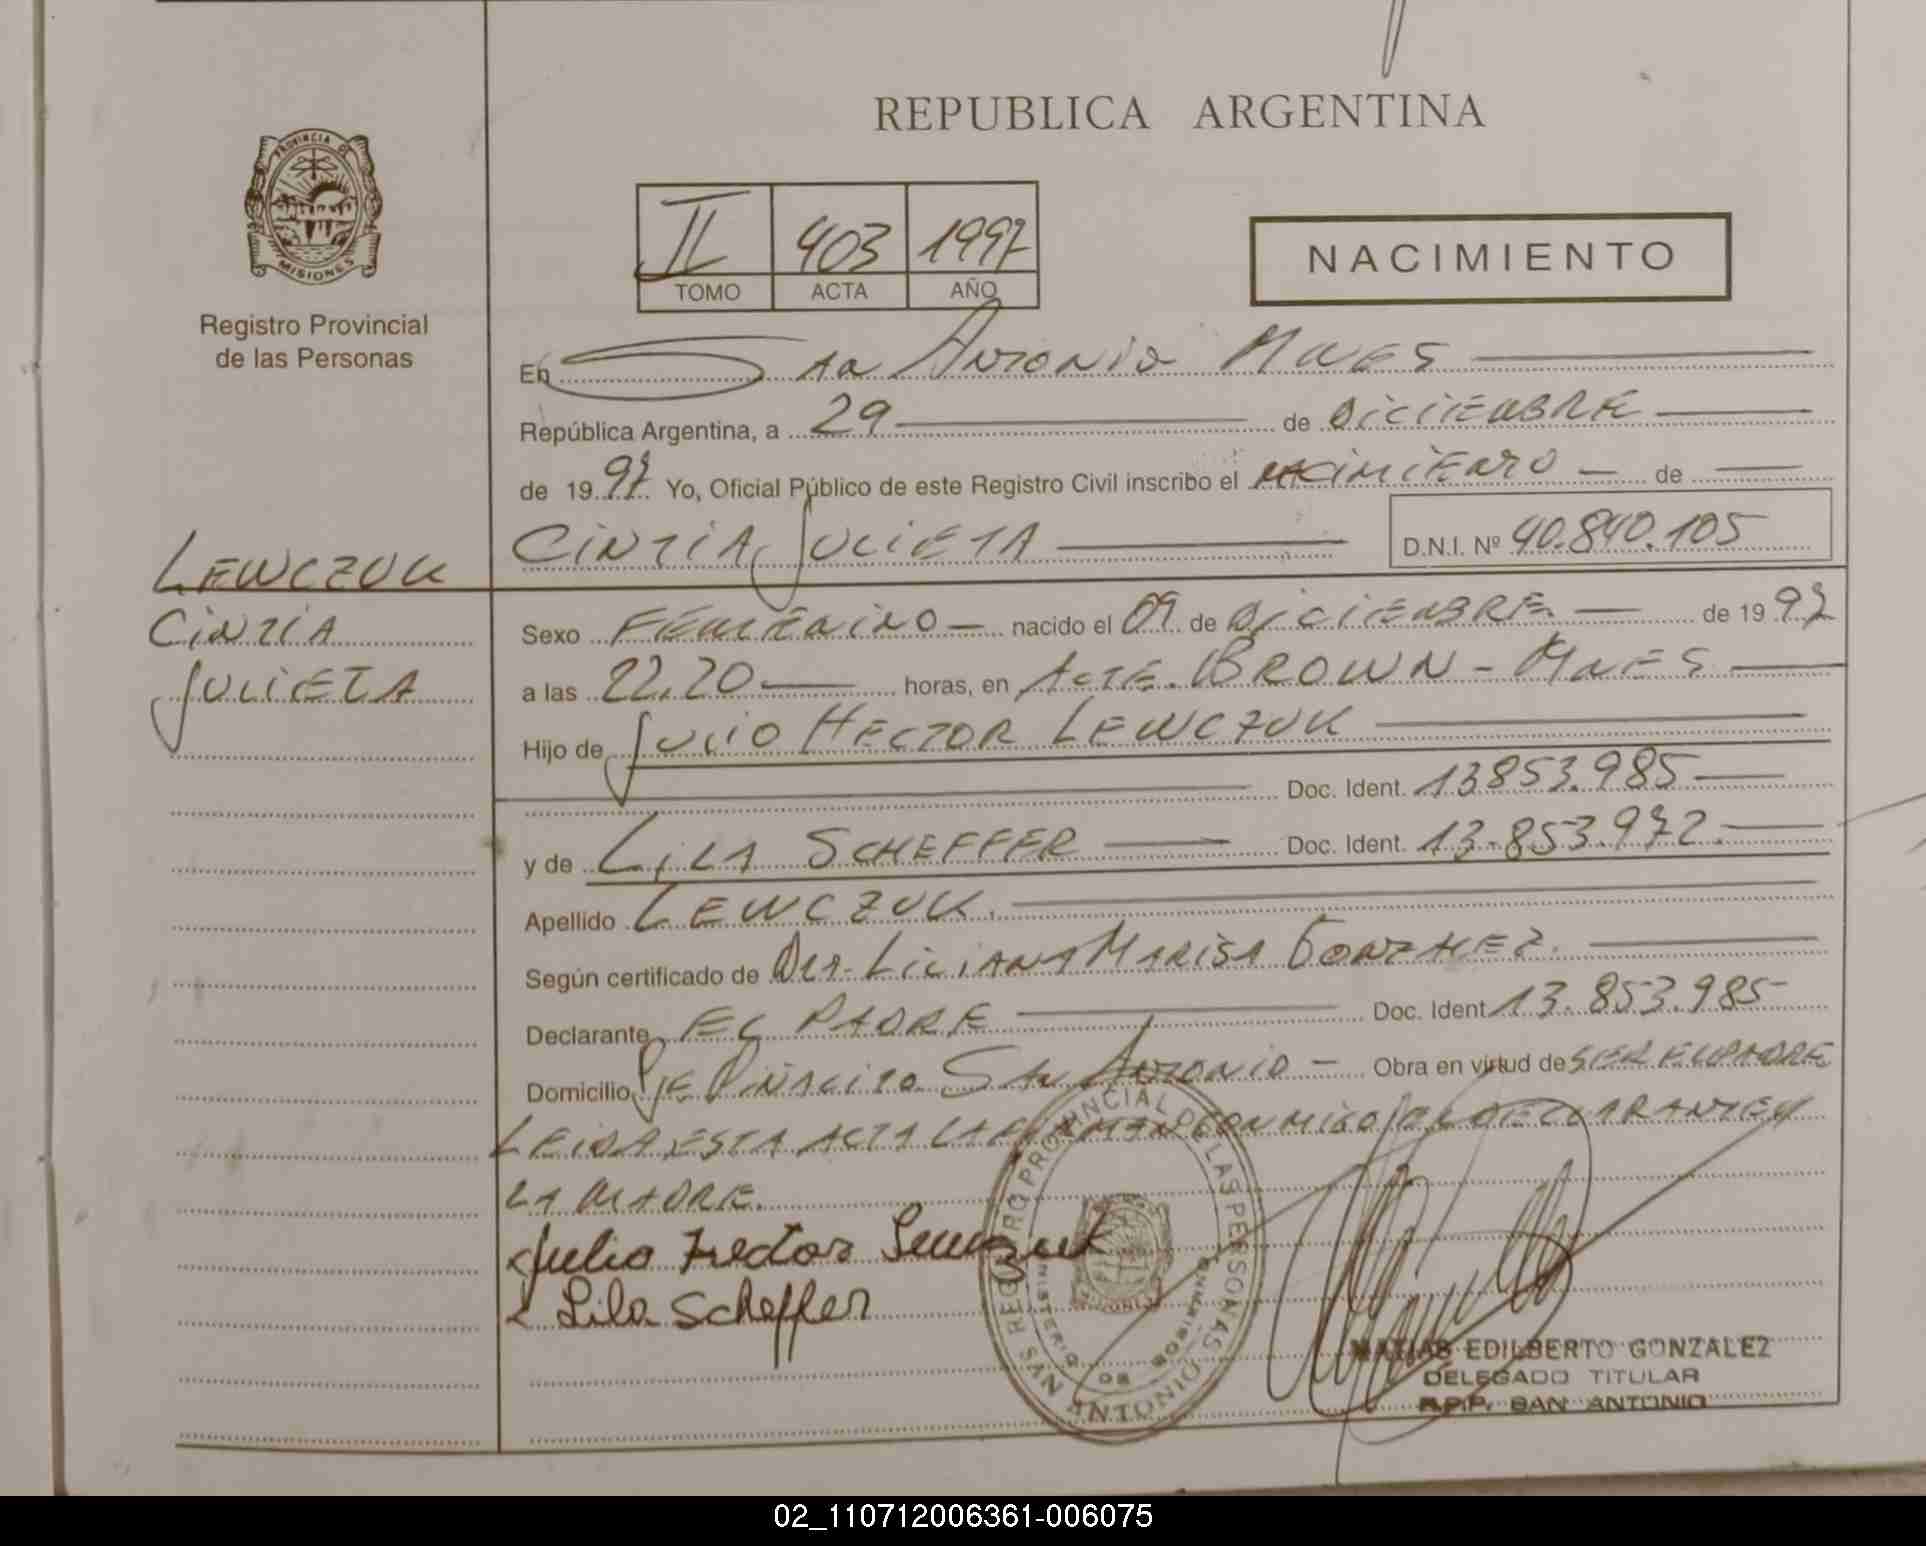 REPUBLICA ARGENTINA
PROVINCIA DE
MISIONES
Registro Provincial
de las Personas
II 403 1997
TOMO ACTA AÑO
NACIMIENTO
En San Antonio Mnes
República Argentina, a 29 de DiCiEMBRE
de 1997 Yo, Oficial Público de este Registro Civil inscribo el NACIMIENTO de
CiNTIA JULIETA D.N.I. Nº 40.840.105
LEWCZUK
CiNTIA
JULIETA
Sexo FEMENINO nacido el 09 de DiCiEMBRE de 1997
a las 22,20 horas, en ALTE. BROWN - MNES
Hijo de JULIO HECTOR LEWCZUK
Doc. Ident. 13853.985
y de LILA SCHEFFER Doc. Ident. 13.853.972.
Apellido LEWCZUK.
Según certificado de DRA. LILIANA MARISA GONZALEZ.
Declarante EL PADRE Doc. Ident. 13.853.985
Domicilio PIÑALITO SAN ANTONIO Obra en virtud de SER EL PADRE
LEIDA ESTA ACTA LA FIRMAN CONMIGO EL DECLARANTE Y
LA MADRE.
Julio Hector Lewczuk
Lila Scheffer
REGISTRO PROVINCIAL DE LAS PERSONAS
MINISTERIO DE GOBIERNO
SAN ANTONIO
MATIAS EDILBERTO GONZALEZ
DELEGADO TITULAR
R.P.P. SAN ANTONIO
02_110712006361-006075